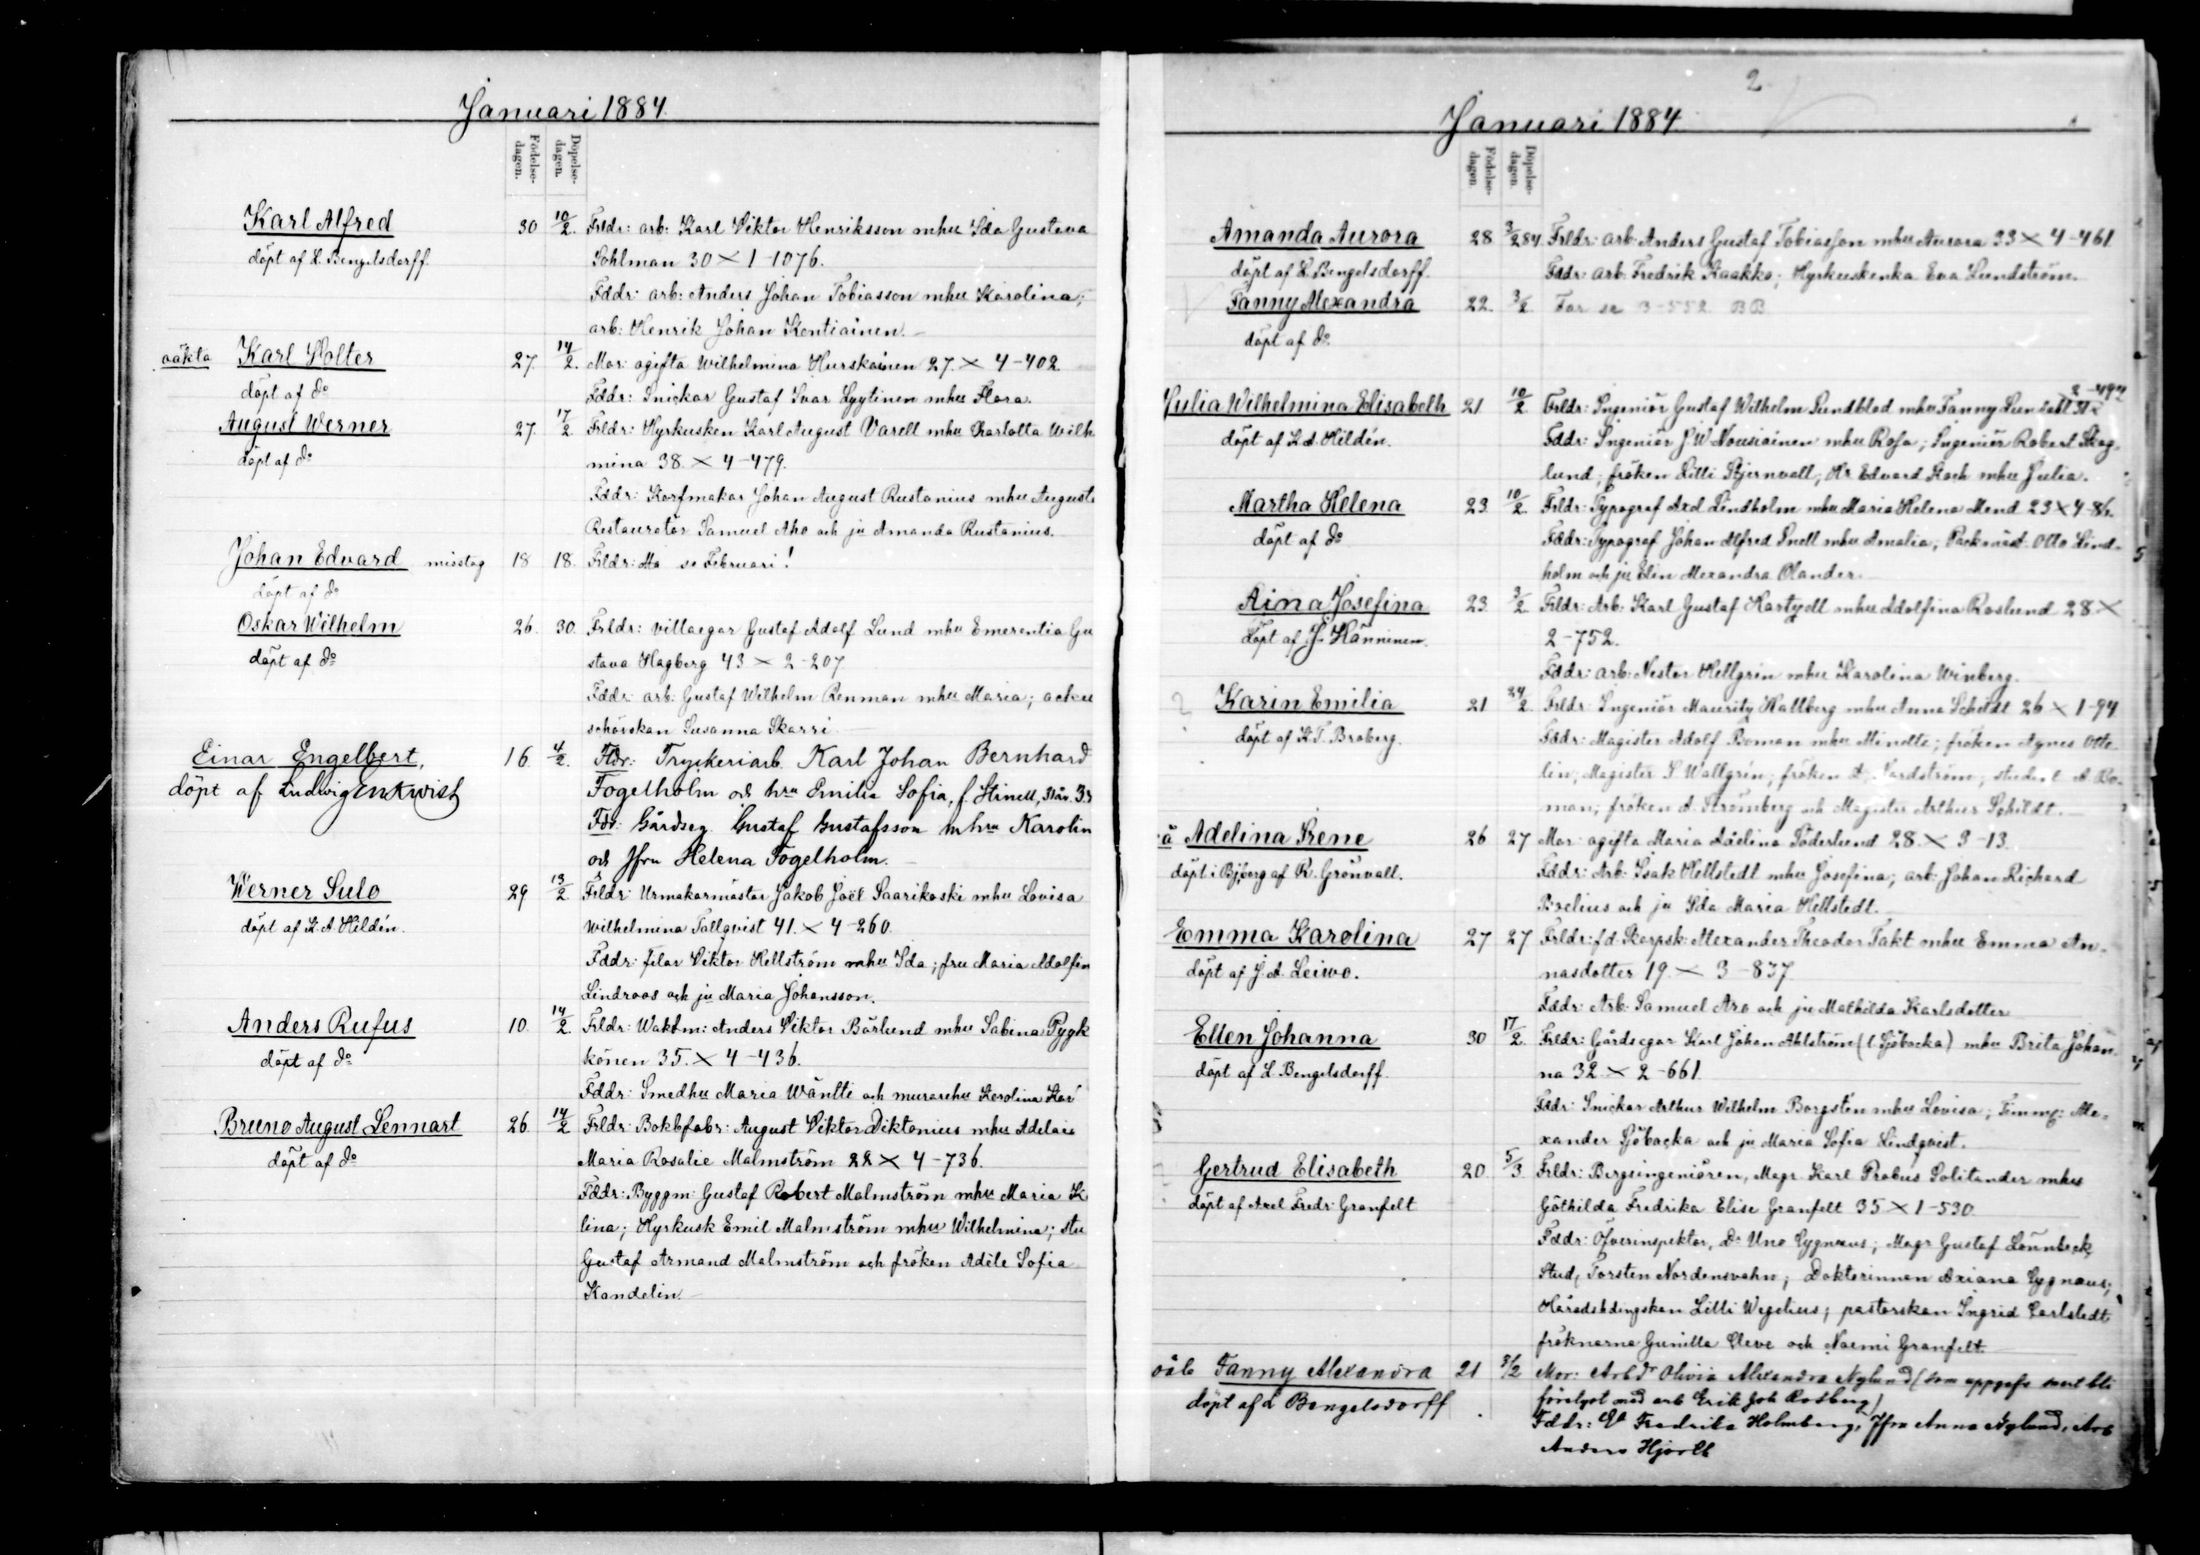 Januari 1884.
Födelse-dagen.
Döpelse-dagen.
Karl Alfred 30 10/2. Frldr: arb: Karl Viktor Henriksson mhu Ida Gustava
döpt af L. Bengelsdorff. Sohlman 30 × 1-1076.
Fddr: arb: Anders Johan Tobiasson mhu Karolina;
arb: Henrik Johan Kontiainen.
oäkta Karl Wolter 27. 14/2. Mor: ogifta Wilhelmina Hurskainen 27. × 4-402
döpt af do Fddr: Snickar Gustaf Ivar Lyytinen mhu Flora.
August Werner 27. 17/2 Frldr: Hyrkusken Karl August Varell mhu Charlotta Wilh
döpt af do mina 38. × 4-479.
Fddr: Korfmakar Johan August Rustanius mhu Augusta
Restauratör Samuel Aho och ju Amanda Rustanius.
Johan Edvard misstag 18 18. Frldr: se Februari!
döpt af do
Oskar Wilhelm 26. 30. Frldr: villaegar Gustaf Adolf Lund mhu Emerentia Gu
döpt af do stava Hagberg 43 × 2-207
Fddr: arb: Gustaf Wilhelm Renman mhu Maria; acku
schörskan Susanna Skarri
Einar Engelbert, 16. 4/2. Fdr: Tryckeriarb. Karl Johan Bernhard
döpt af Ludvig Enkvist Fogelholm och hru Emilia Sofia, f.
Fdr: Gårdseg. Gustaf Gustafsson mhru Karolin
och Jfru Helena Fogelholm.
Werner Sulo 29 13/2 Frldr: Urmakarmästar Jakob Joël Saarikoski mhu Lovisa
döpt af K. A. Hildén. Wilhelmina Tallqvist 41. × 4-260.
Fddr: filar Viktor Hellström mhu Ida; fru Maria Adolfin
Lindroos och ju Maria Johansson.
Anders Rufus 10. 14/2 Frldr: Waktm: Anders Viktor Bärlund mhu Sabina Pygk
döpt af do könen 35. × 4-436.
Fddr: Smedhu Maria Wäntti och murarehu Karolina
Bruno August Lennart 26. 14/2 Frldr: Bokbfabr: August Viktor Diktonius mhu Adelais
döpt af do Maria Rosalie Malmström 22 × 4-736.
Fddr: Byggm: Gustaf Robert Malmström mhu Maria K
lina; Hyrkusk Emil Malmström mhu Wilhelmina; stu
Gustaf Armand Malmström och fröken Adèle Sofia
Kandelin
2
Januari 1884
Födelse-dagen
Döpelse-dagen
Amanda Aurora 28 3/2 84 Frldr: arb: Anders Gustaf Tobiasson mhu Aurora 33 × 4-461
döpt af L. Bengelsdorff. Fddr: arb: Fredrik Kaakko; Hyrkuskenka Eva Lundström.
Fanny Alexandra 22. 3/2 Far se 3-552 BB
döpt af do
Julia Wilhelmina Elisabeth 21 10/2 Frldr: Ingeniör Gustaf Wilhelm Sundblad mhu Fanny
döpt af K. A. Hildén. Fddr: Ingeniör J W Nousiainen mhu Rosa; Ingeniör Robert Skog-
lund; fröken Lilli Stjernvall; Hr Edvard Koch mhu Julia.
Martha Helena 23. 10/2. Frldr: Typograf Axel Lindholm mhu Maria Helena Mend 23 × 4-86.
döpt af do Fddr: Typograf Johan Alfred Snell mhu Amalia; Packmäst. Otto Lind-
holm och ju Elin Alexandra Olander.
Aina Josefina 23. 3/2 Frldr: Arb: Karl Gustaf Hartzell mhu Adolfina Roslund 28 ×
döpt af J. Hänninen. 2-752.
Fddr: arb: Nestor Hellgrén mhu Karolina Winberg.
Karin Emilia 21 24/2 Frldr: Ingeniör Mauritz Hallberg mhu Anna Schildt 26 × 1-94
döpt af K. T. Broberg. Fddr: Magister Adolf Boman mhu Minette; fröken Agnes Otte-
lin; Magister S Wallgrén; fröken A Nordström; student A Bo-
man; fröken A. Strömberg och Magister Arthur Schildt.
Adelina Irene 26 27 Mor: ogifta Maria Adelina Söderlund 28. × 3-13.
döpt i Bjberg af R. Grönvall. Fddr: Arb: Isak Hellstedt mhu Josefina; arb: Johan Richard
och ju Ida Maria Hellstedt.
Emma Karolina 27 27 Frldr: fd Skarpsk: Alexander Theodor Takt mhu Emma An-
döpt af J. A. Leiwo. nasdotter 19. × 3-837
Fddr: Arb: Samuel Aro och ju Mathilda Karlsdotter
Ellen Johanna 30 17/2 Frldr: Gårdsegar Karl Johan Ahlström (l. Sjöbacka) mhu Brita Johan-
döpt af L. Bengelsdorff. na 32. × 2-661.
Fddr: Snickar Arthur Wilhelm Borgstén mhu Lovisa; Timmg: Ale-
xander Sjöbacka och ju Maria Sofia Lindqvist.
Gertrud Elisabeth 20. 5/3 Frldr: Bergsingeniören, Magr. Karl Probus Solitander mhu
döpt af Axel Fredr: Granfelt Göthilda Fredrika Elise Granfelt 35 × 1-530
Fddr: Öfverinspektor, Dr Uno Cygnæus; Magr Gustaf Lönnbeck,
Stud, Torsten Nordensvahn; Doktorinnan Axiana Cygnæus;
Häradshödingskan Lilli Wegelius; pastorskan Ingrid Carlstedt
fröknarna Gunilla Cleve och Naemi Granfelt.
oäk Fanny Alexandra 21 3/2 Mor: Arbdr Olivia Alexandra Nylund (som uppgifs bli
döpt af L Bengelsdorff förelyst med arb Erik Joh Rosberg)
Fddr: Fredrika Holmberg, Jfru Anna Nylund, Arb
Anders Hjorth